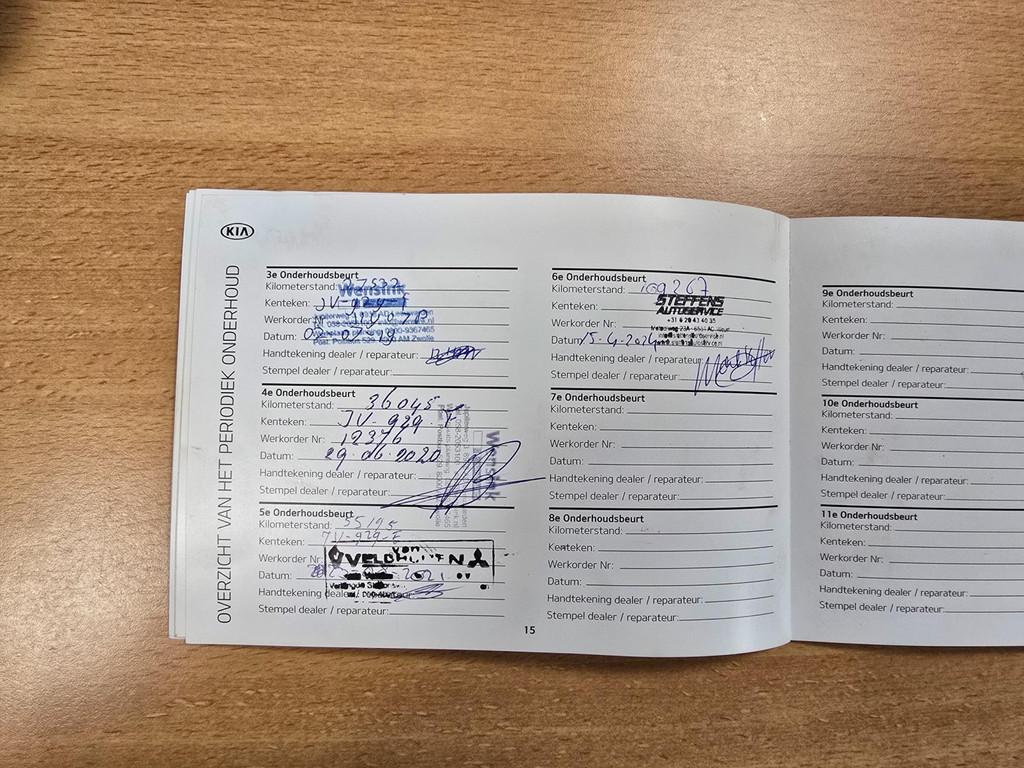 KIA
OVERZICHT VAN HET PERIODIEK ONDERHOUD
3e Onderhoudsbeurt
Kilometerstand:
Wensink
Kenteken: JV-929-
Werkorder Nr:
Datum:
Handtekening dealer / reparateur:
Stempel dealer / reparateur:
4e Onderhoudsbeurt
Kilometerstand: 36045
Kenteken: JV-929-F
Werkorder Nr: 12376
Datum: 29.06.2020
Wensink
Handtekening dealer / reparateur:
Stempel dealer / reparateur:
5e Onderhoudsbeurt
Kilometerstand: 55195
Kenteken: JV-929-F
Werkorder Nr:
van
Datum: 2021
Handtekening dealer / reparateur:
Stempel dealer / reparateur:
15
6e Onderhoudsbeurt
Kilometerstand: 109267
Kenteken:
STEFFENS
AUTOSERVICE
Werkorder Nr:
Datum: 15-4-2024
Handtekening dealer / reparateur:
Stempel dealer / reparateur:
7e Onderhoudsbeurt
Kilometerstand:
Kenteken:
Werkorder Nr:
Datum:
Handtekening dealer / reparateur:
Stempel dealer / reparateur:
8e Onderhoudsbeurt
Kilometerstand:
Kenteken:
Werkorder Nr:
Datum:
Handtekening dealer / reparateur:
Stempel dealer / reparateur:
9e Onderhoudsbeurt
Kilometerstand:
Kenteken:
Werkorder Nr:
Datum:
Handtekening dealer / reparateur:
Stempel dealer / reparateur:
10e Onderhoudsbeurt
Kilometerstand:
Kenteken:
Werkorder Nr:
Datum:
Handtekening dealer / reparateur:
Stempel dealer / reparateur:
11e Onderhoudsbeurt
Kilometerstand:
Kenteken:
Werkorder Nr:
Datum:
Handtekening dealer / reparateur:
Stempel dealer / reparateur: